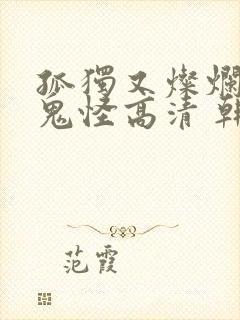 孤獨又燦爛
鬼怪高清 韓
范霞